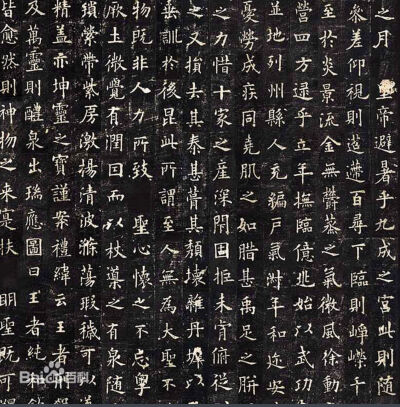 之月 皇帝避暑乎九成之宮此則隨
參差仰視則迢遰百尋下臨則崢嶸千
至於炎景流金無鬱蒸之氣微風徐動
營四方逮乎立年撫臨億兆始以武功
並地列州縣人充編戶氣淑年和迩安
憂勞成疾同堯肌之如腊甚禹足之胼
之力惜十家之產深閉固拒未肯俯從
之又損去其泰甚葺其頹壞雜丹墀以
垂訓於後昆此所謂至人無為大聖不
物既非人力所致 聖心懷之不忘粵
厥土微覺有潤因而以杖導之有泉隨
瑣縈帶紫房激揚清波滌蕩瑕穢可以導
精蓋亦坤靈之寶謹案禮緯云王者
及萬靈則醴泉出瑞應圖曰王者純和
皆愈然則神物之来寔扶 明聖既可
Bai百科